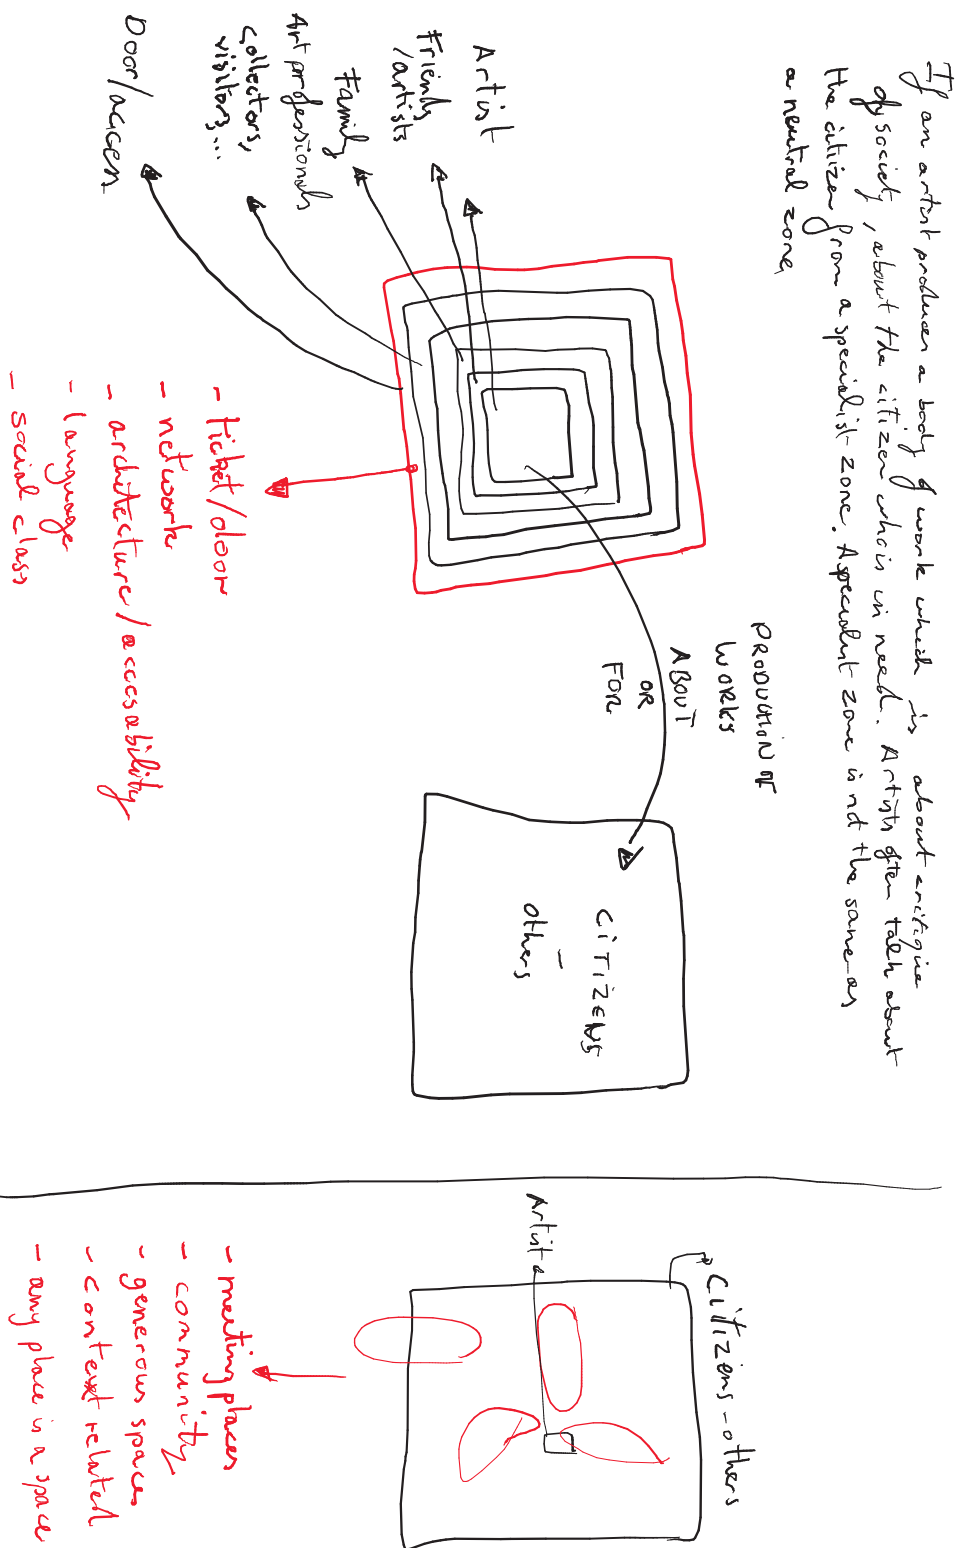 If an artist produces a body of work which is about critique
of society, about the citizen who is in need. Artists often talk about
the citizen from a specialist zone. A specialist zone is not the same as
a neutral zone,
Artist
Friends
/artists
Family
Art professionals
collectors,
visitors...
Door/access
PRODUCTION OF
WORKS
ABOUT
OR
FOR
CITIZENS
-
others
- ticket/door
- network
- architecture/accesability
- language
- social class
Citizens-others
Artist
- meeting places
- community
- generous spaces
- context related
- any place is a space